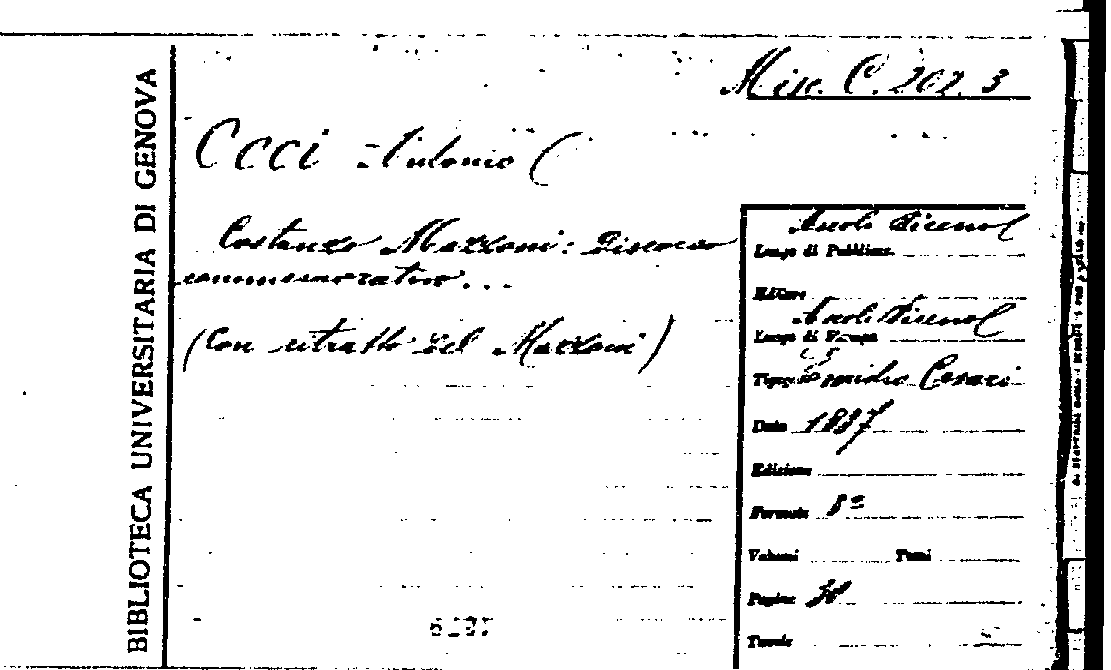 BIBLIOTECA UNIVERSITARIA DI GENOVA
Misc. C. 202. 3
Ceci Antonio
Costanzo Mazzoni: Discorso
commemorativo...
(Con ritratto del Mazzoni)
Ascoli Piceno
Luogo di Pubblicaz.
Editore
Ascoli Piceno
Luogo di Stampa
Emidio Cesari
Data 1887
Edizione
Formato 8º
Volumi Tomi
Pagine
Tavole